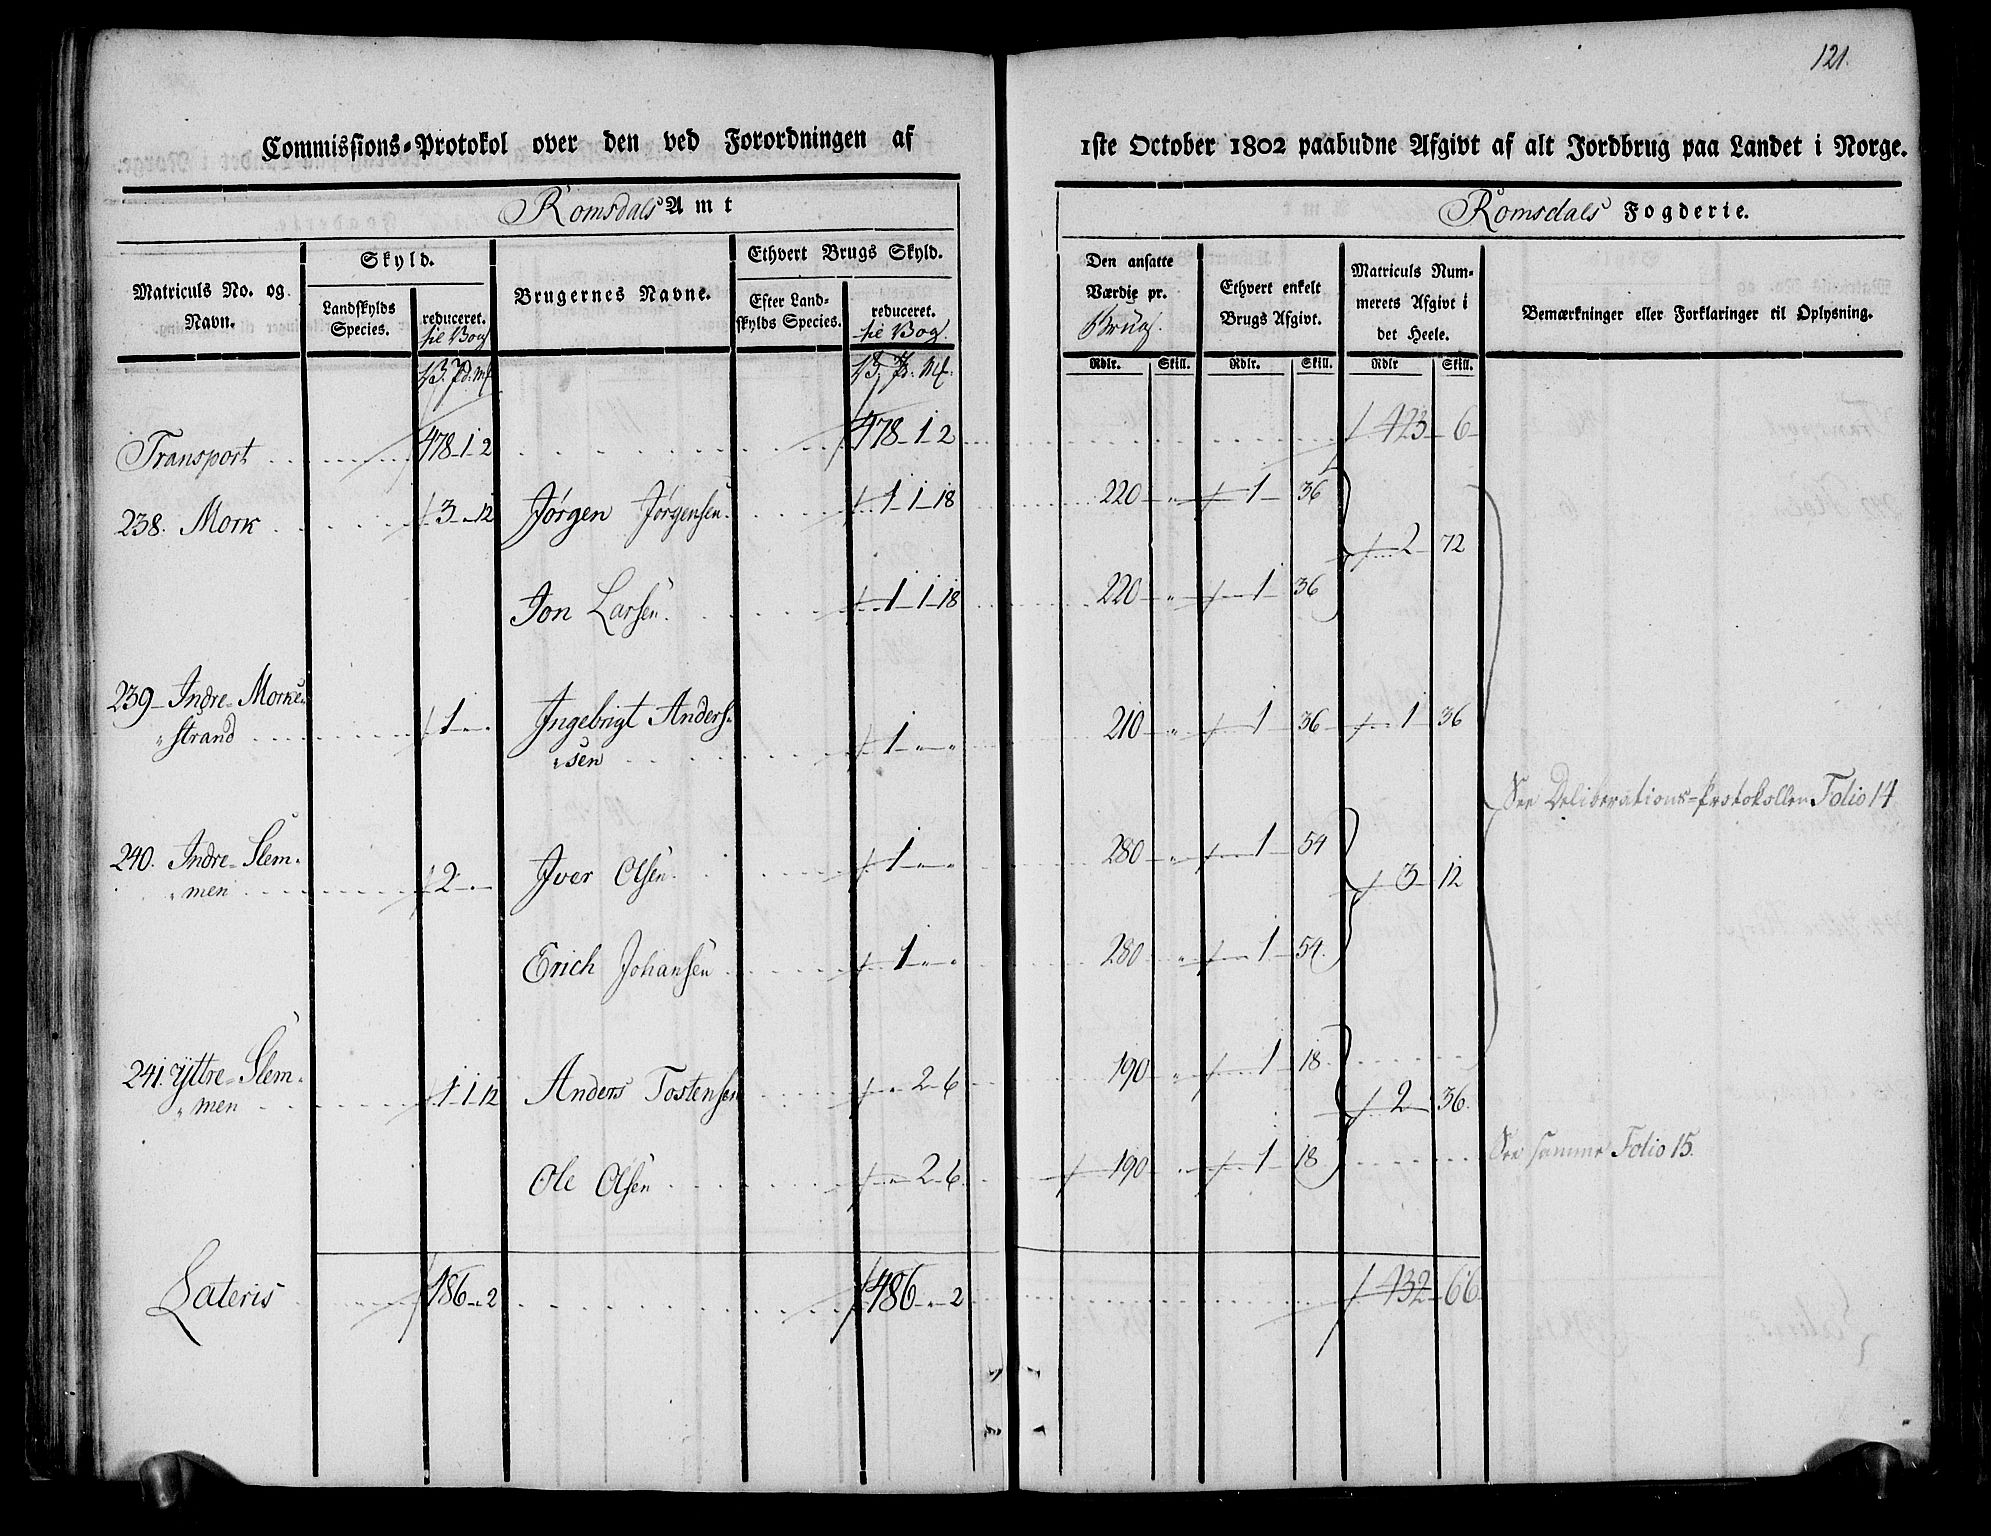 121.
Commissions-Protokol over den ved Forordningen af
1ste October 1802 paabudne Afgivt af alt Jordbrug paa Landet i Norge.
Romsdals Amt
Romsdals Fogderie.
Matriculs No. og Navn.
Skyld.
Landskylds Species.
reduceret. til Bog
Brugernes Navne.
Ethvert Brugs Skyld.
Efter Landskylds Species.
reduceret. til Bog.
Den ansatte Værdie pr. Brug.
Ethvert enkelt Brugs Afgivt.
Matriculs Nummerets Afgivt i det Heele.
Bemærkninger eller Forklaringer til Oplysning.
Rdlr. Skill. Rdlr. Skill. Rdlr Skill.
Transport 478-1-2 478-1-2 423-6-
238. Mork 3-„-12 Jørgen Jørgensen. 1-1-18 220-„ 1-36
2-72
Jon Larsen. 1-1-18 220-„ 1-36
239- Indre-Morke-
„strand 1-„- Ingebrigt Anders-
„sen 1-„-„ 210-„ 1-36 1-36
See Deliberations-Protokollen Folio 14
240. Indre-Slem-
„men 2-„- Iver Olsen. 1-„-„ 280-„ 1-54
3-12
Erich Johansen 1-„-„ 280-„ 1-54.
241. Yttre-Slem-
„men 1-1-12 Anders Tostensen „-2-6 190-„ 1-18
2-36.
See samme Folio 15.
Ole Olsen „-2-6. 190-„ 1-18
Lateris 486-„-2 486-„-2 432-66